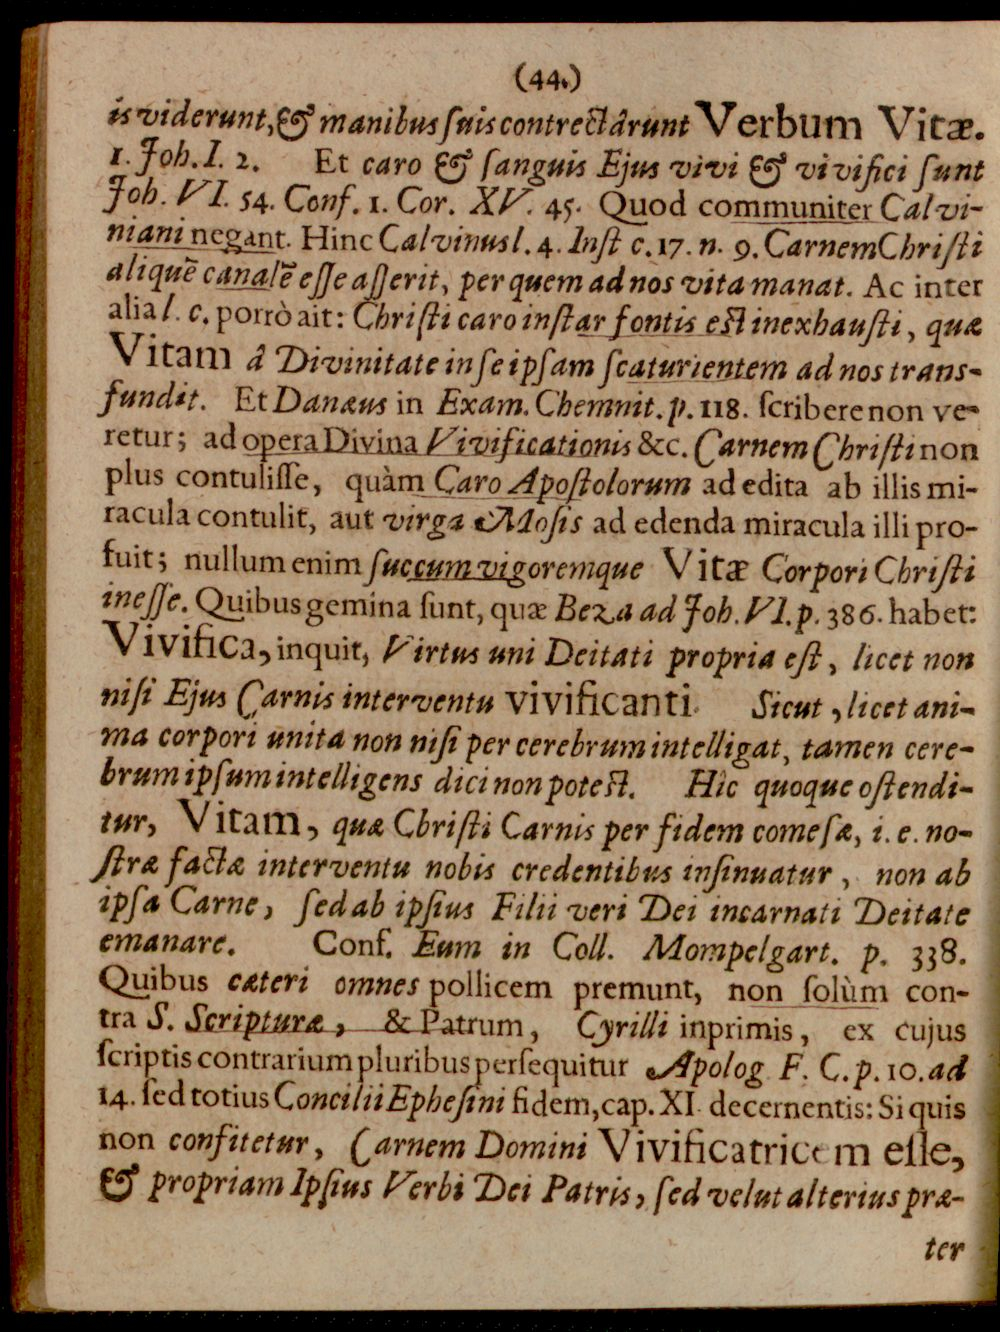 (44.)
is viderunt, & manibus suis contrectârunt Verbum Vitæ.
1. Joh. I. 2. Et caro & sanguis Ejus vivi & vivifici sunt
Joh. VI. 54. Conf. 1. Cor. XV. 45. Quod communiter Calvi-
niani negant. Hinc Calvinus l. 4. Inst c. 17. n. 9. Carnem Christi
aliquẽ canalẽ esse asserit, per quem ad nos vita manat. Ac inter
alia l. c. porrò ait: Christi caro instar fontis est inexhausti, quæ
Vitam â Divinitate in se ipsam scaturientem ad nos trans-
fundit. Et Danæus in Exam. Chemnit. p. 118. scribere non ve-
retur; ad opera Divina Vivificationis &c. Carnem Christi non
plus contulisse, quàm Caro Apostolorum ad edita ab illis mi-
racula contulit, aut virga Mosis ad edenda miracula illi pro-
fuit; nullum enim succum vigoremque Vitæ Corpori Christi
inesse. Quibus gemina sunt, quæ Beza ad Joh. VI. p. 386. habet:
Vivifica, inquit, Virtus uni Deitati propria est, licet non
nisi Ejus Carnis interventu vivificanti. Sicut, licet ani-
ma corpori unita non nisi per cerebrum intelligat, tamen cere-
brum ipsum intelligens dici non potest. Hic quoque ostendi-
tur, Vitam, quæ Christi Carnis per fidem comesæ, i. e. no-
stræ factæ interventu nobis credentibus insinuatur, non ab
ipsa Carne, sed ab ipsius Filii veri Dei incarnati Deitate
emanare. Conf. Eum in Coll. Mompelgart. p. 338.
Quibus cæteri omnes pollicem premunt, non solùm con-
tra S. Scripturæ, & Patrum, Cyrilli inprimis, ex cujus
scriptis contrarium pluribus persequitur Apolog F. C. p. 10. ad
14. sed totius Concilii Ephesini fidem, cap. XI. decernentis: Si quis
non confitetur, Carnem Domini Vivificatricem esse,
& propriam Ipsius Verbi Dei Patris, sed velut alterius præ-
ter